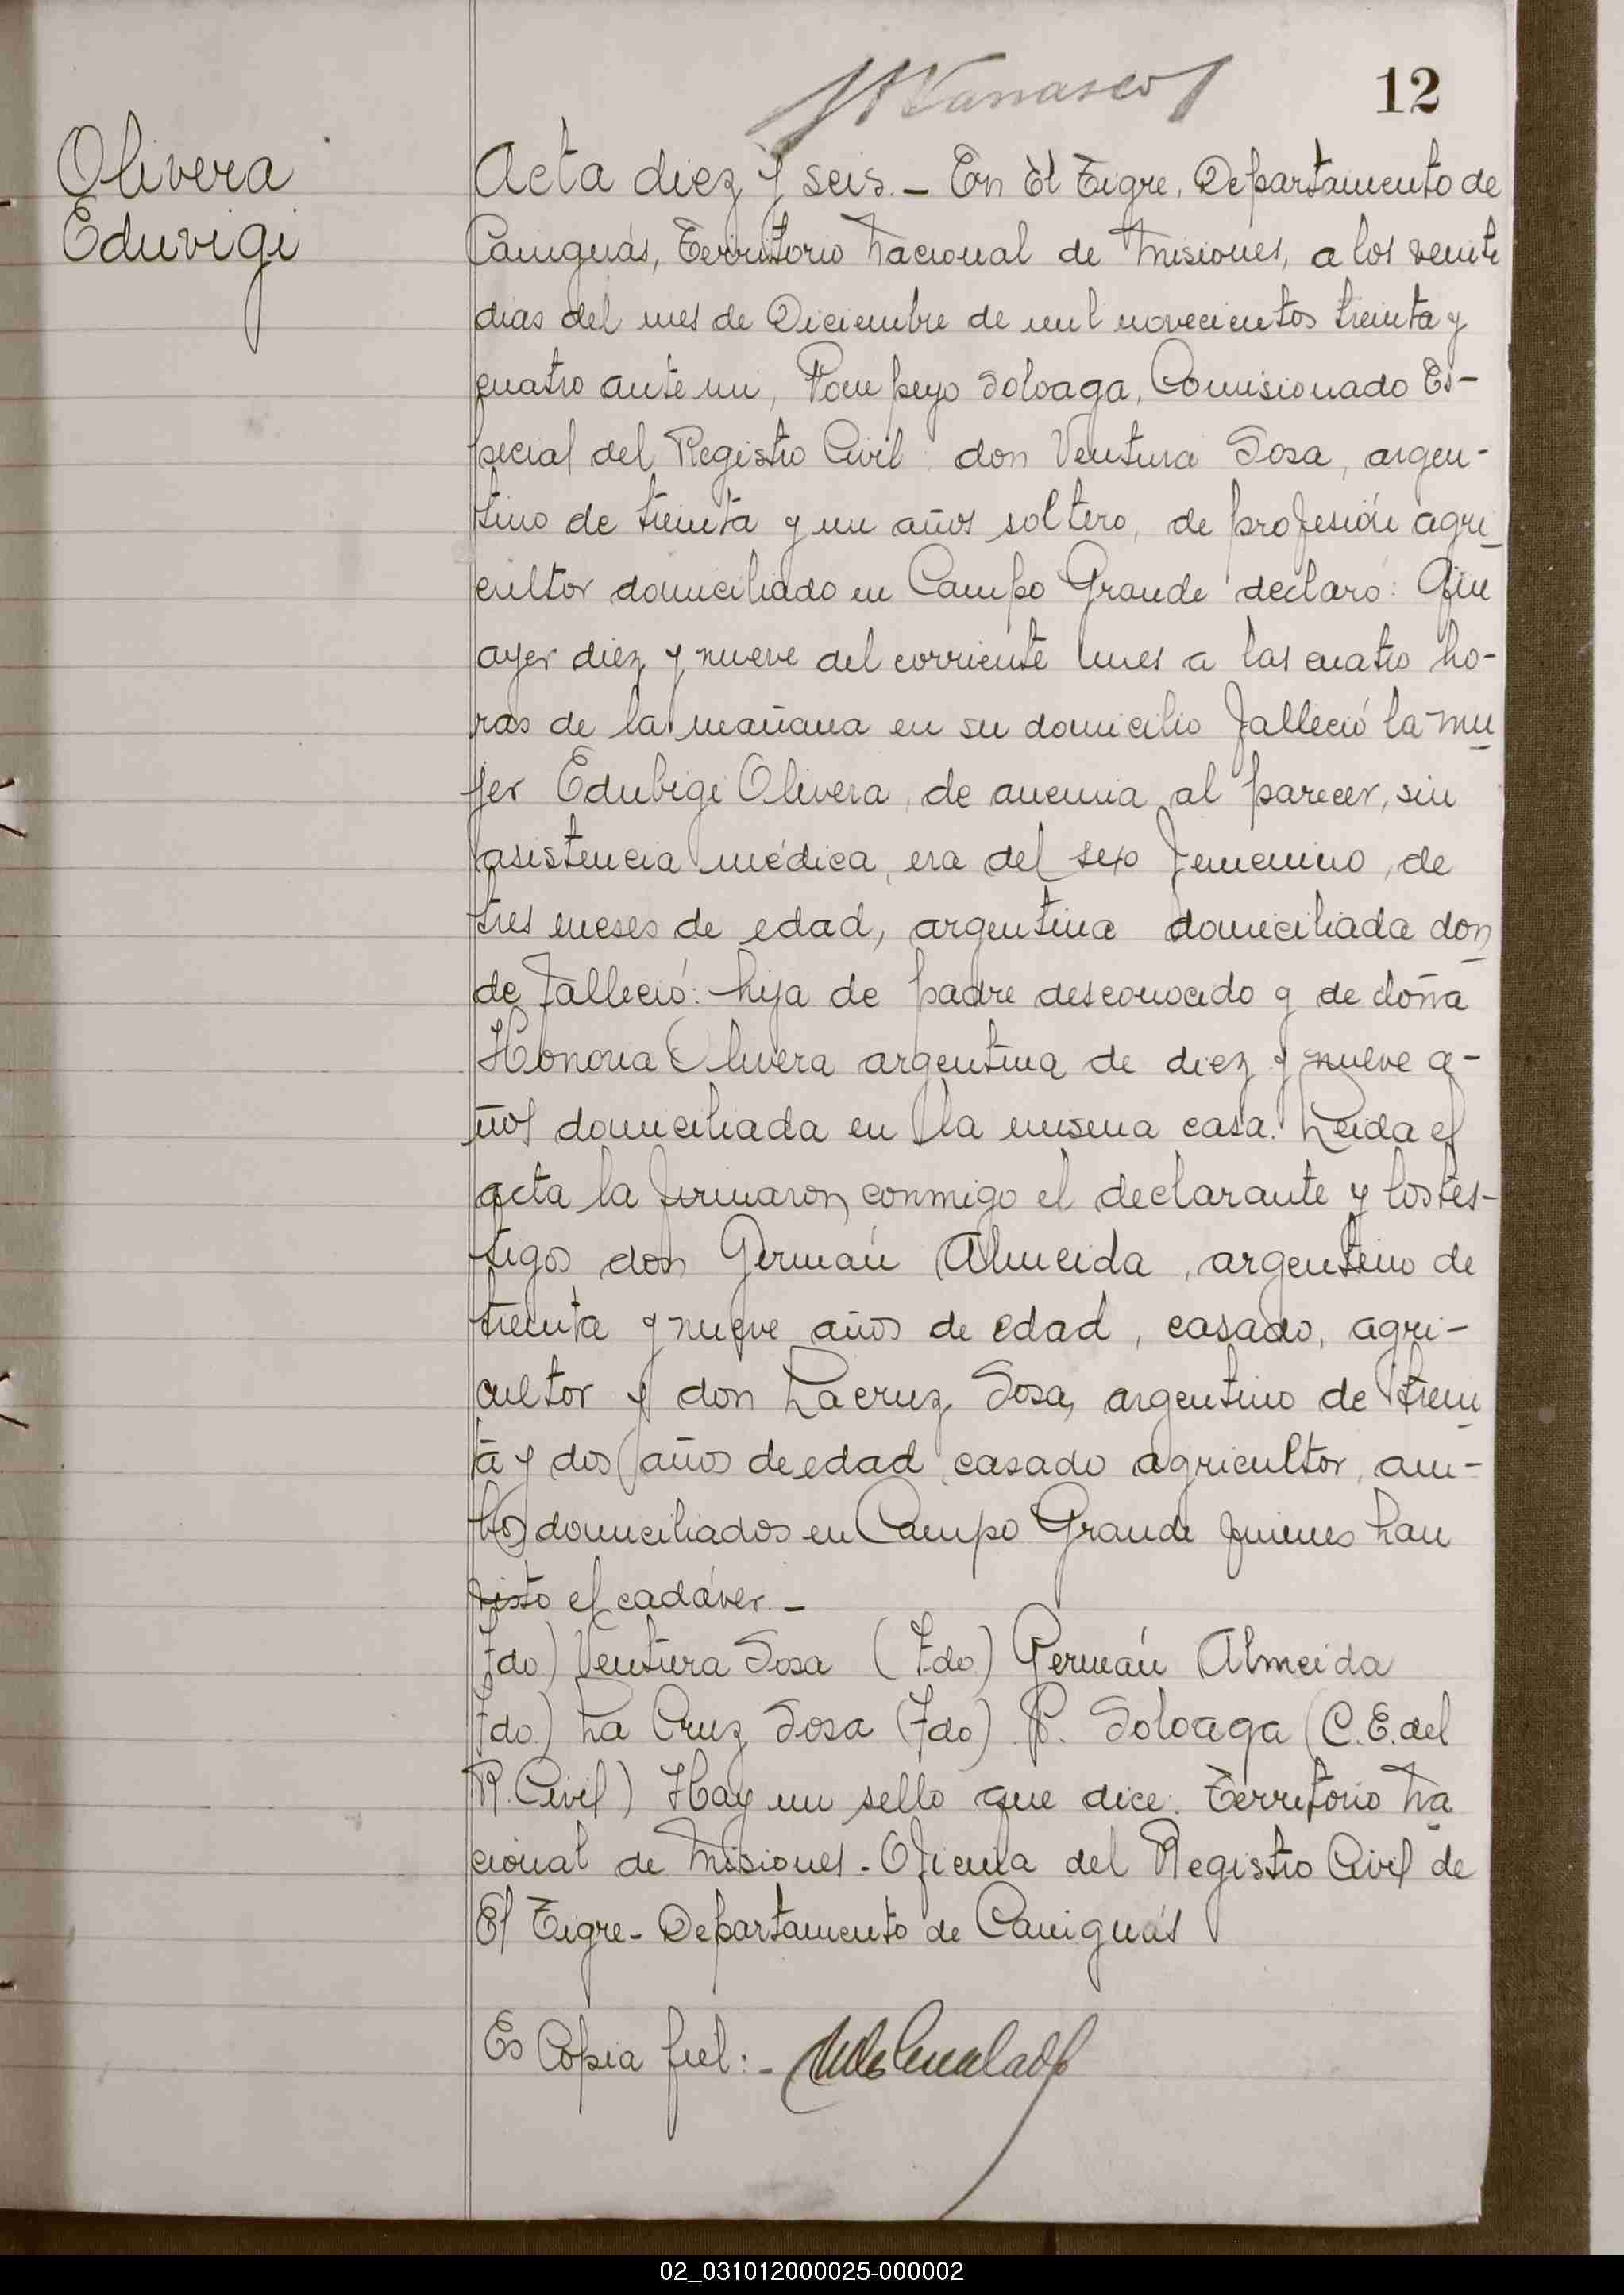 12
Olivera
Eduvigi
Acta diez y seis. - En El Tigre, Departamento de
Cainguás, Territorio Nacional de Misiones, a los veinte
dias del mes de Diciembre de mil novecientos treinta y
cuatro ante mi, Pompeyo Soloaga, Comisionado Es-
pecial del Registro Civil: don Ventura Sosa, argen-
tino de treinta y un años soltero, de profesión agri-
cultor domiciliado en Campo Grande declaró: Que
ayer diez y nueve del corriente mes a las cuatro ho-
ras de la mañana en su domicilio falleció la mu-
jer Edubigi Olivera, de anemia al parecer, sin
asistencia médica, era del sexo femenino, de
tres meses de edad, argentina domiciliada don-
de falleció: hija de padre desconocido y de doña
Honoria Olivera argentina de diez y nueve a-
ños domiciliada en la misma casa. Leida el
acta la firmaron conmigo el declarante y los tes-
tigos don Germán Almeida, argentino de
treinta y nueve años de edad, casado, agri-
cultor y don Lacruz Sosa, argentino de trein-
ta y dos años de edad casado agricultor, am-
bos domiciliados en Campo Grande quienes han
visto el cadáver. -
Fdo) Ventura Sosa (Fdo) Germán Almeida
Fdo.) La Cruz Sosa (Fdo) P. Soloaga (C.E. del
R. Civil) Hay un sello que dice: Territorio Na-
cional de Misiones - Oficina del Registro Civil de
El Tigre - Departamento de Cainguás
Es Copia fiel: -
02_031012000025-000002